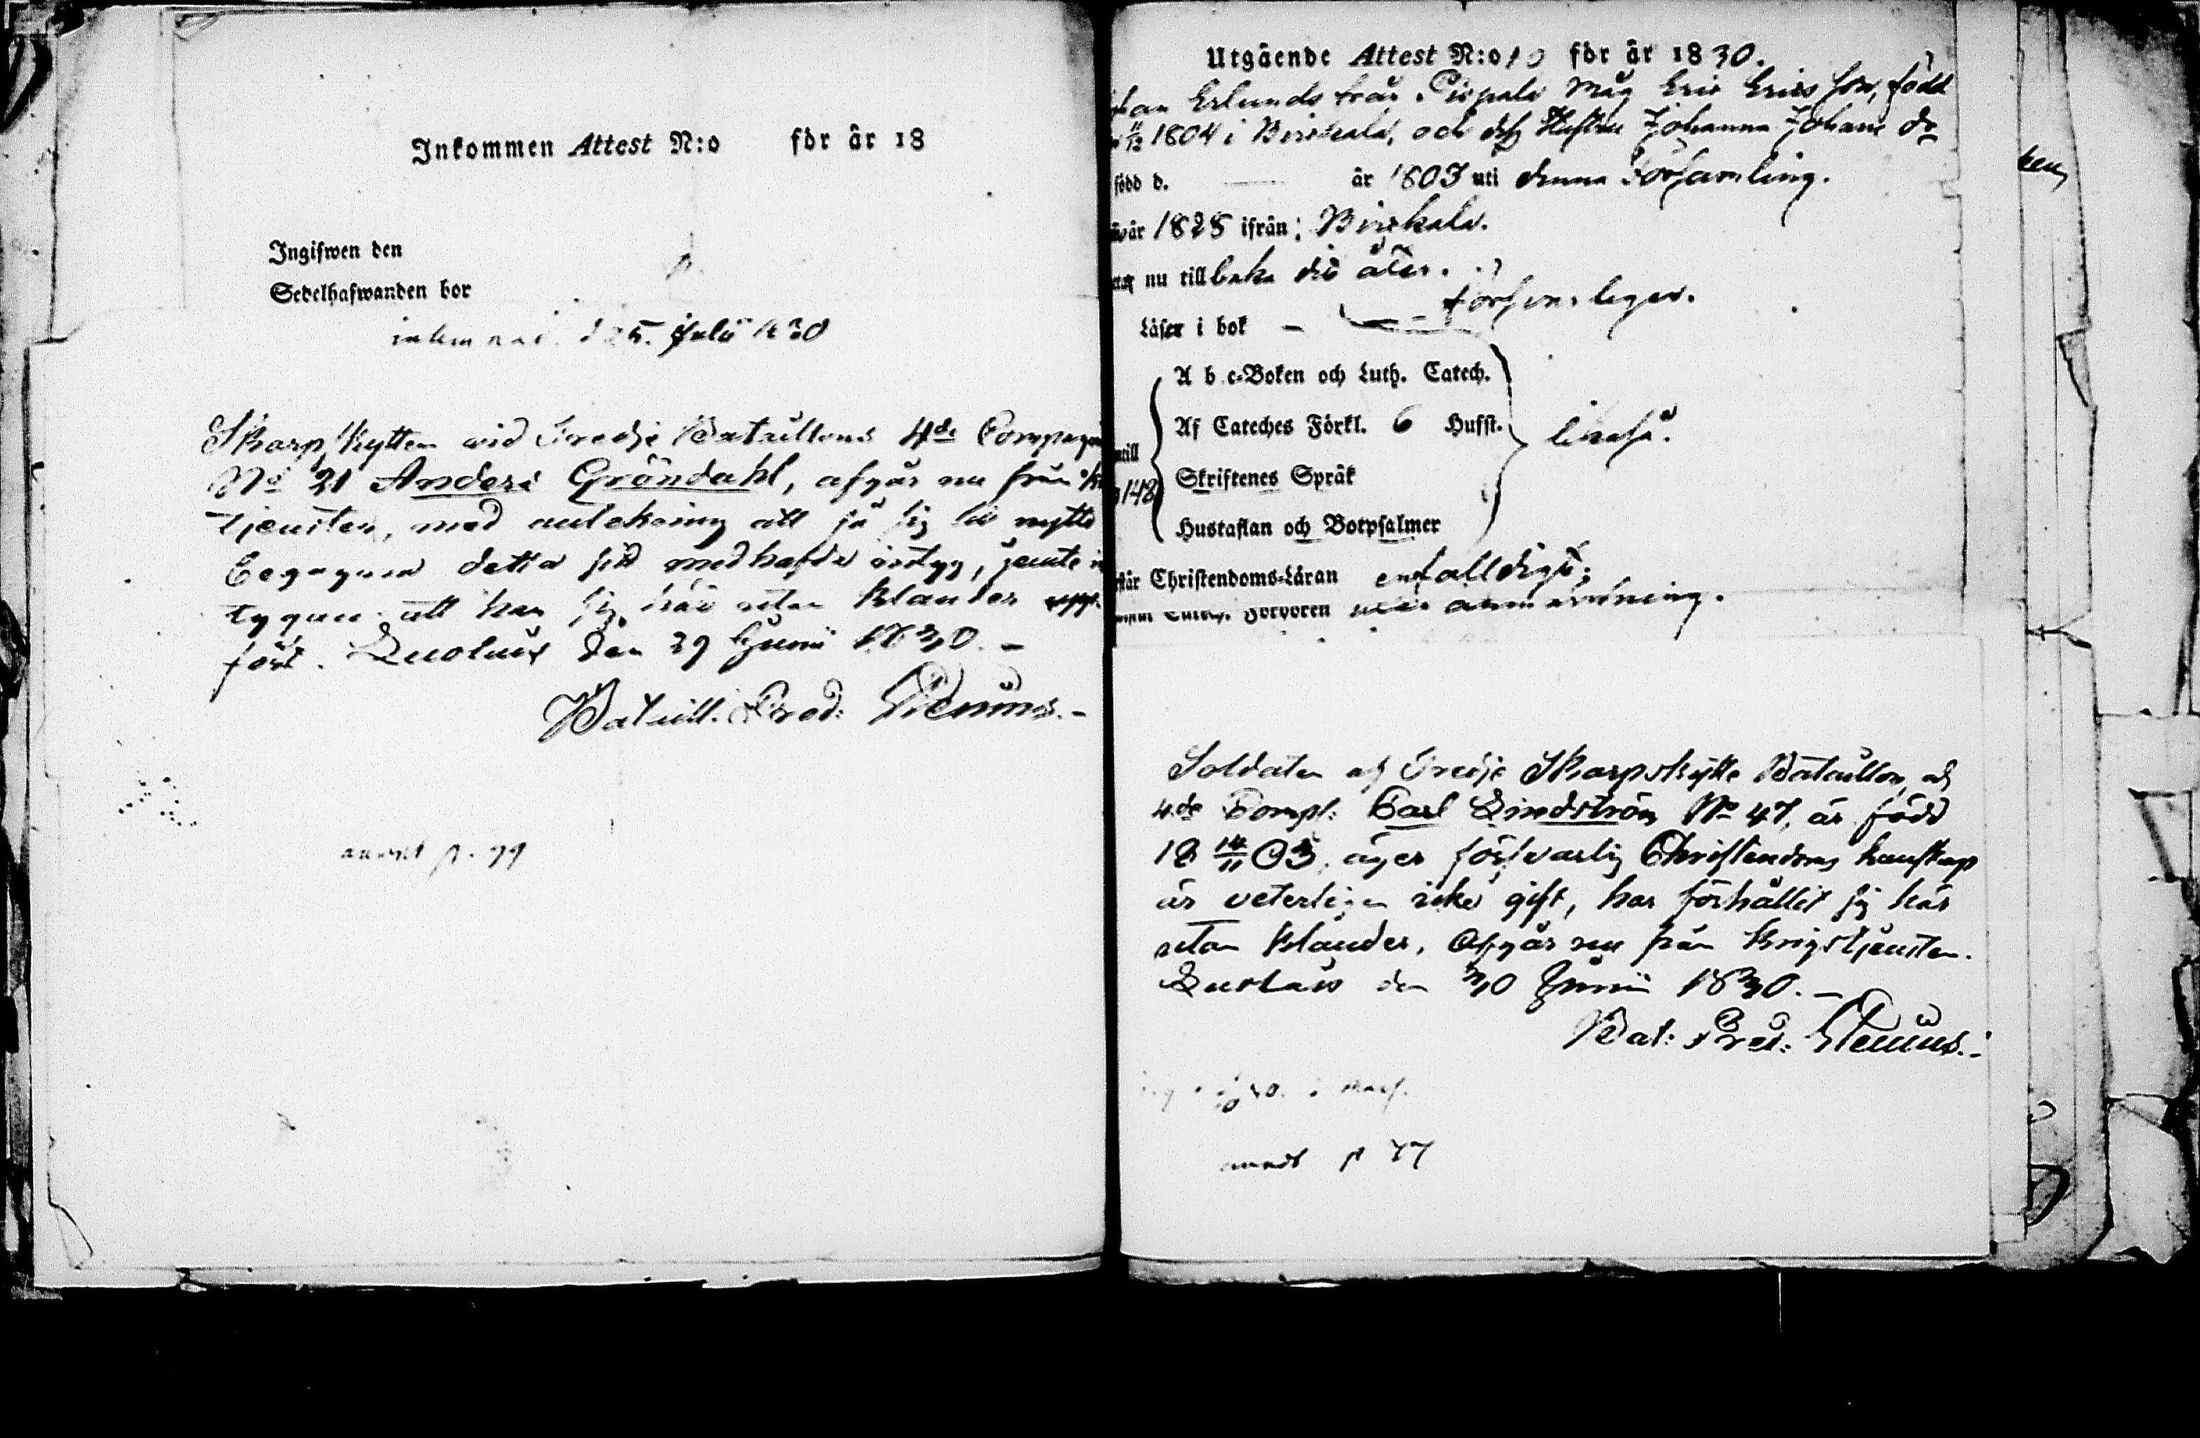 Inkommen Attest N:o för år 18
Ingifwen den
Sedelhafwanden bor
d 25. Julii 1830
Skarpskytten wid Tredje Bataillons 4de Compagn
No 21 Anders Gröndahl, afgår nu från
tjensten, med anteckning att få sig till nytta
detta sitt medhafda, jemte
tygan att han sig här utan klander upp-
fört. Luolais den 29 Junii 1830. –
Bataill. Pred: Stenius. –
p. 79
Utgående Attest N:o 10 för år 1830.
Erlunds från måg Eric Ericsson, född
11/12 1804 i Birckala, och dess Hustru Johanna Johans dr
född d. år 1803 uti denna Församling.
år 1828 ifrån: Birkala.
nu till baka dit åter.
Läser i bok – försvarligen.
A b c-Boken och Luth. Catech.
Af Cateches Förkl. 6 Hufst. likaså.
Skriftenes Språk
148
Hustaflan och Botpsalmer
Christendoms-Läran enfalldigt;
utan anmärkning.
Soldaten af Tredje Skarpskytte Bataillon och
4de Comp: Carl Lindström No 47, är född
18 14/11 03, äger försvarlig Christendoms kunskap
är veterligen icke gift, har förhållit sig här
utan klander. Afgår nu från Krigstjensten.
Luolais den 30 Junii 1830. –
Bat: Pred: Stenius. –
p 77